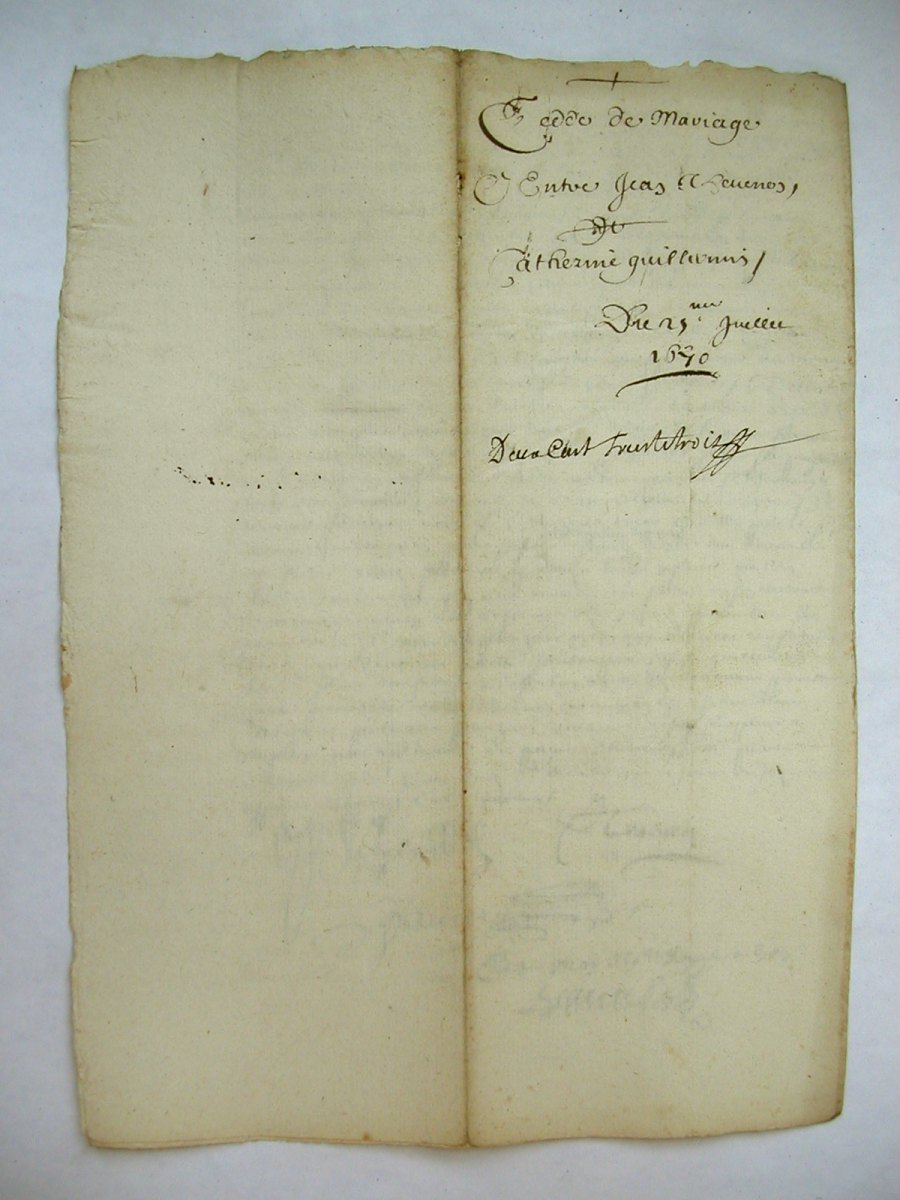 Cedde de Mariage
Entre Jean Theuenos,
Et
Catherine guillaumis,
Du 25me Juillet
1670
Deux Cent Trente trois